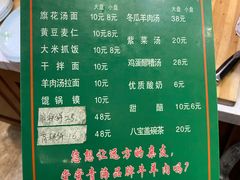 大盘 小盘
大盘 小盘
旗花汤面 10元 8元
冬瓜羊肉汤 38元
黄豆麦仁 10元 8元
紫菜汤 20元
大米抓饭 10元 8元
鸡蛋醪糟汤 28元
干拌面 10元
羊肉汤拉面 10元
优质酸奶 6元
馄锅馍 10元
甜醅 10元 6元
48元
八宝盖碗茶 20元
48元
您想让远方的亲友,
尝尝青海品牌牛羊肉吗?